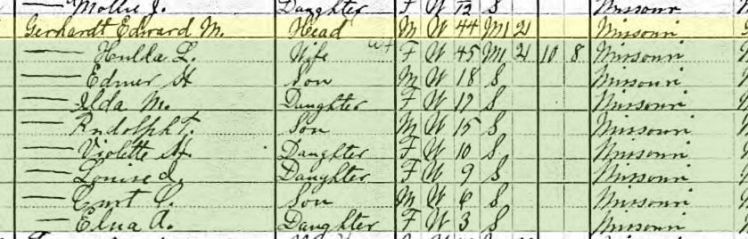 — Mollie J. Daughter F W 12 S Missouri
Gerhardt Edward M. Head M W 44 M1 21 Missouri
— Hulda L. Wife F W 45 M1 21 10 8 Missouri
— Edmer H Son M W 18 S Missouri
— Ilda M. Daughter F W 17 S Missouri
— Rudolph T. Son M W 15 S Missouri
— Violette H. Daughter F W 10 S Missouri
— Louise I. Daughter F W 9 S Missouri
— Curt C. Son M W 6 S Missouri
— Elna A. Daughter F W 3 S Missouri